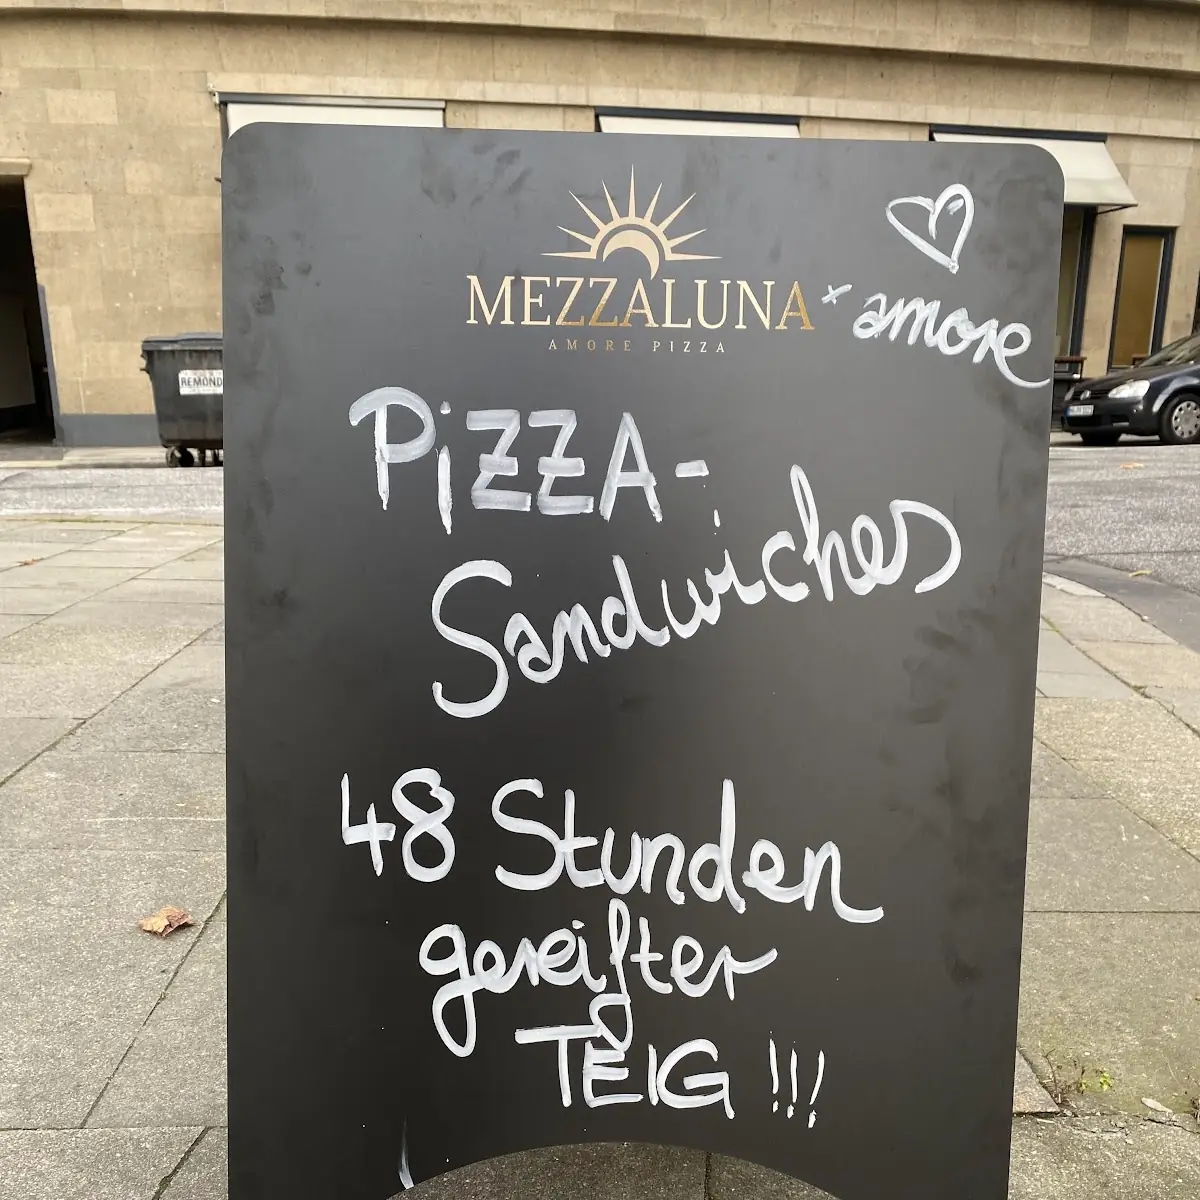 MEZZALUNA
AMORE PIZZA
amore
PiZZA-
Sandwiches
48 Stunden
gereifter
TEIG !!!
REMOND